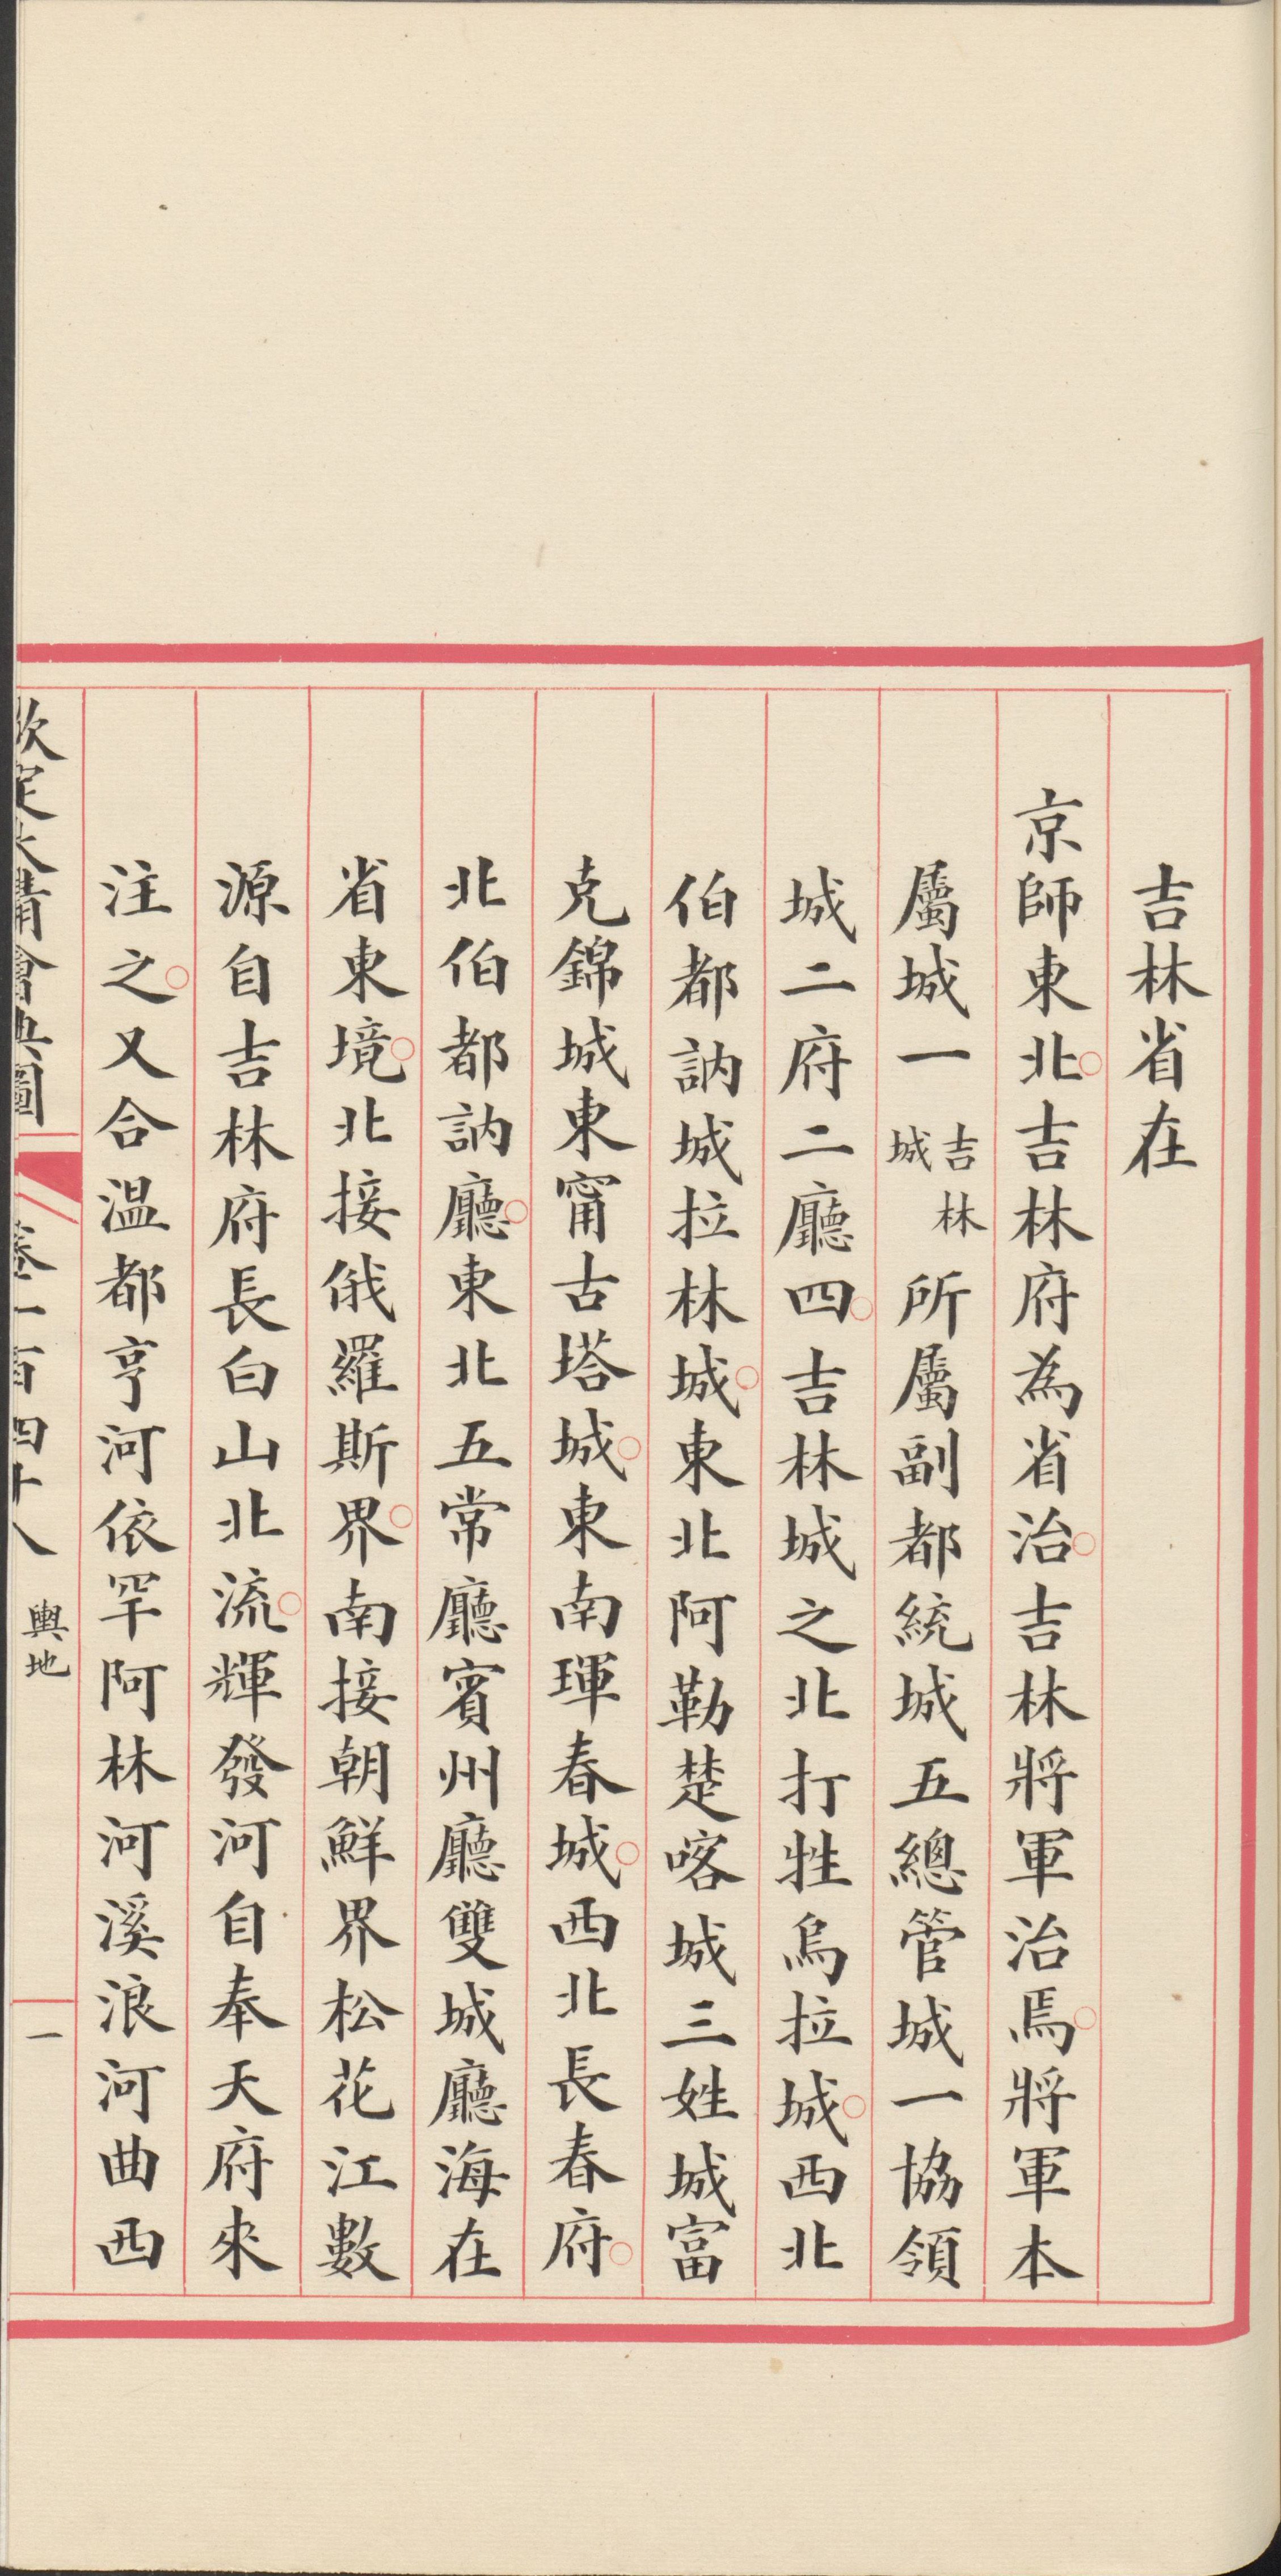 吉林省在
京師東北吉林府為省治吉林將軍治焉將軍本
屬城一吉林城所屬副都統城五總管城一協領
城二府二廳四吉林城之北打牲烏拉城西北
伯都訥城拉林城東北阿勒楚喀城三姓城富
克錦城東甯古塔城東南琿春城西北長春府
北伯都訥廳東北五常廳賓州廳雙城廳海在
省東境北接俄羅斯界南接朝鮮界松花江數
源自吉林府長白山北流輝發河自奉天府來
注之又合溫都亨河依罕阿林河溪浪河曲西
欽定大清會典圖 卷一百四十八 輿地 一